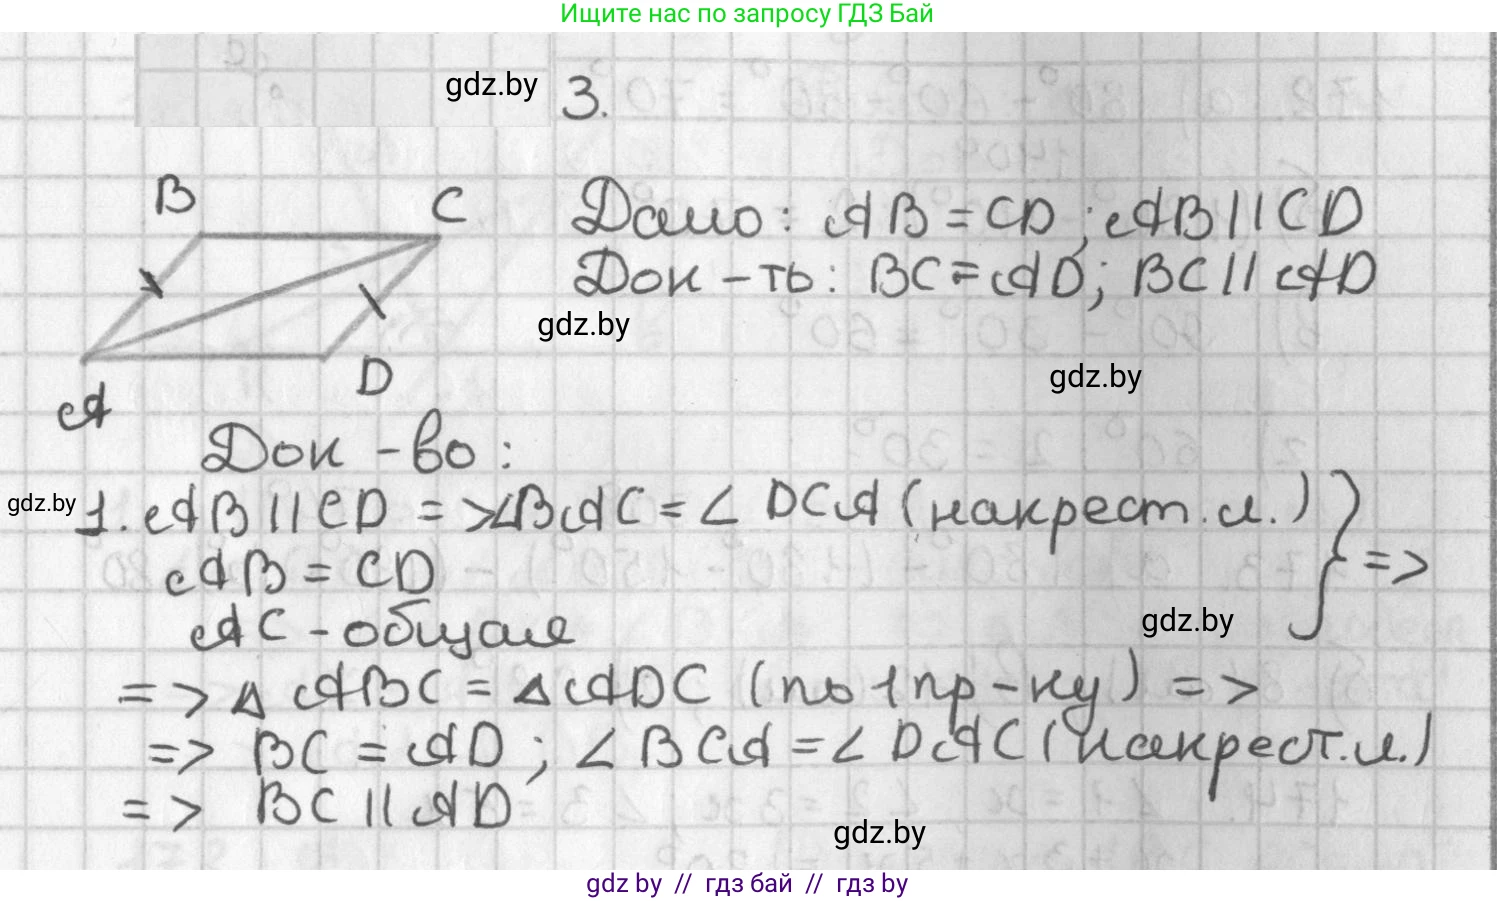 Ищите нас по запросу ГДЗ Бай
gdz.by
3.
B
C
Дано: AB = CD; AB || CD
Док-ть: BC = AD; BC || AD
gdz.by
gdz.by
D
A
Док-во:
gdz.by
1. AB || CD => ∠BAC = ∠DCA (накрест.л.)
AB = CD
=>
AC - общая
gdz.by
=> △ABC = △ADC (по 1 пр-ку) =>
=> BC = AD; ∠BCA = ∠DAC (накрест.л.)
=> BC || AD
gdz.by
gdz by // гдз бай // гдз by